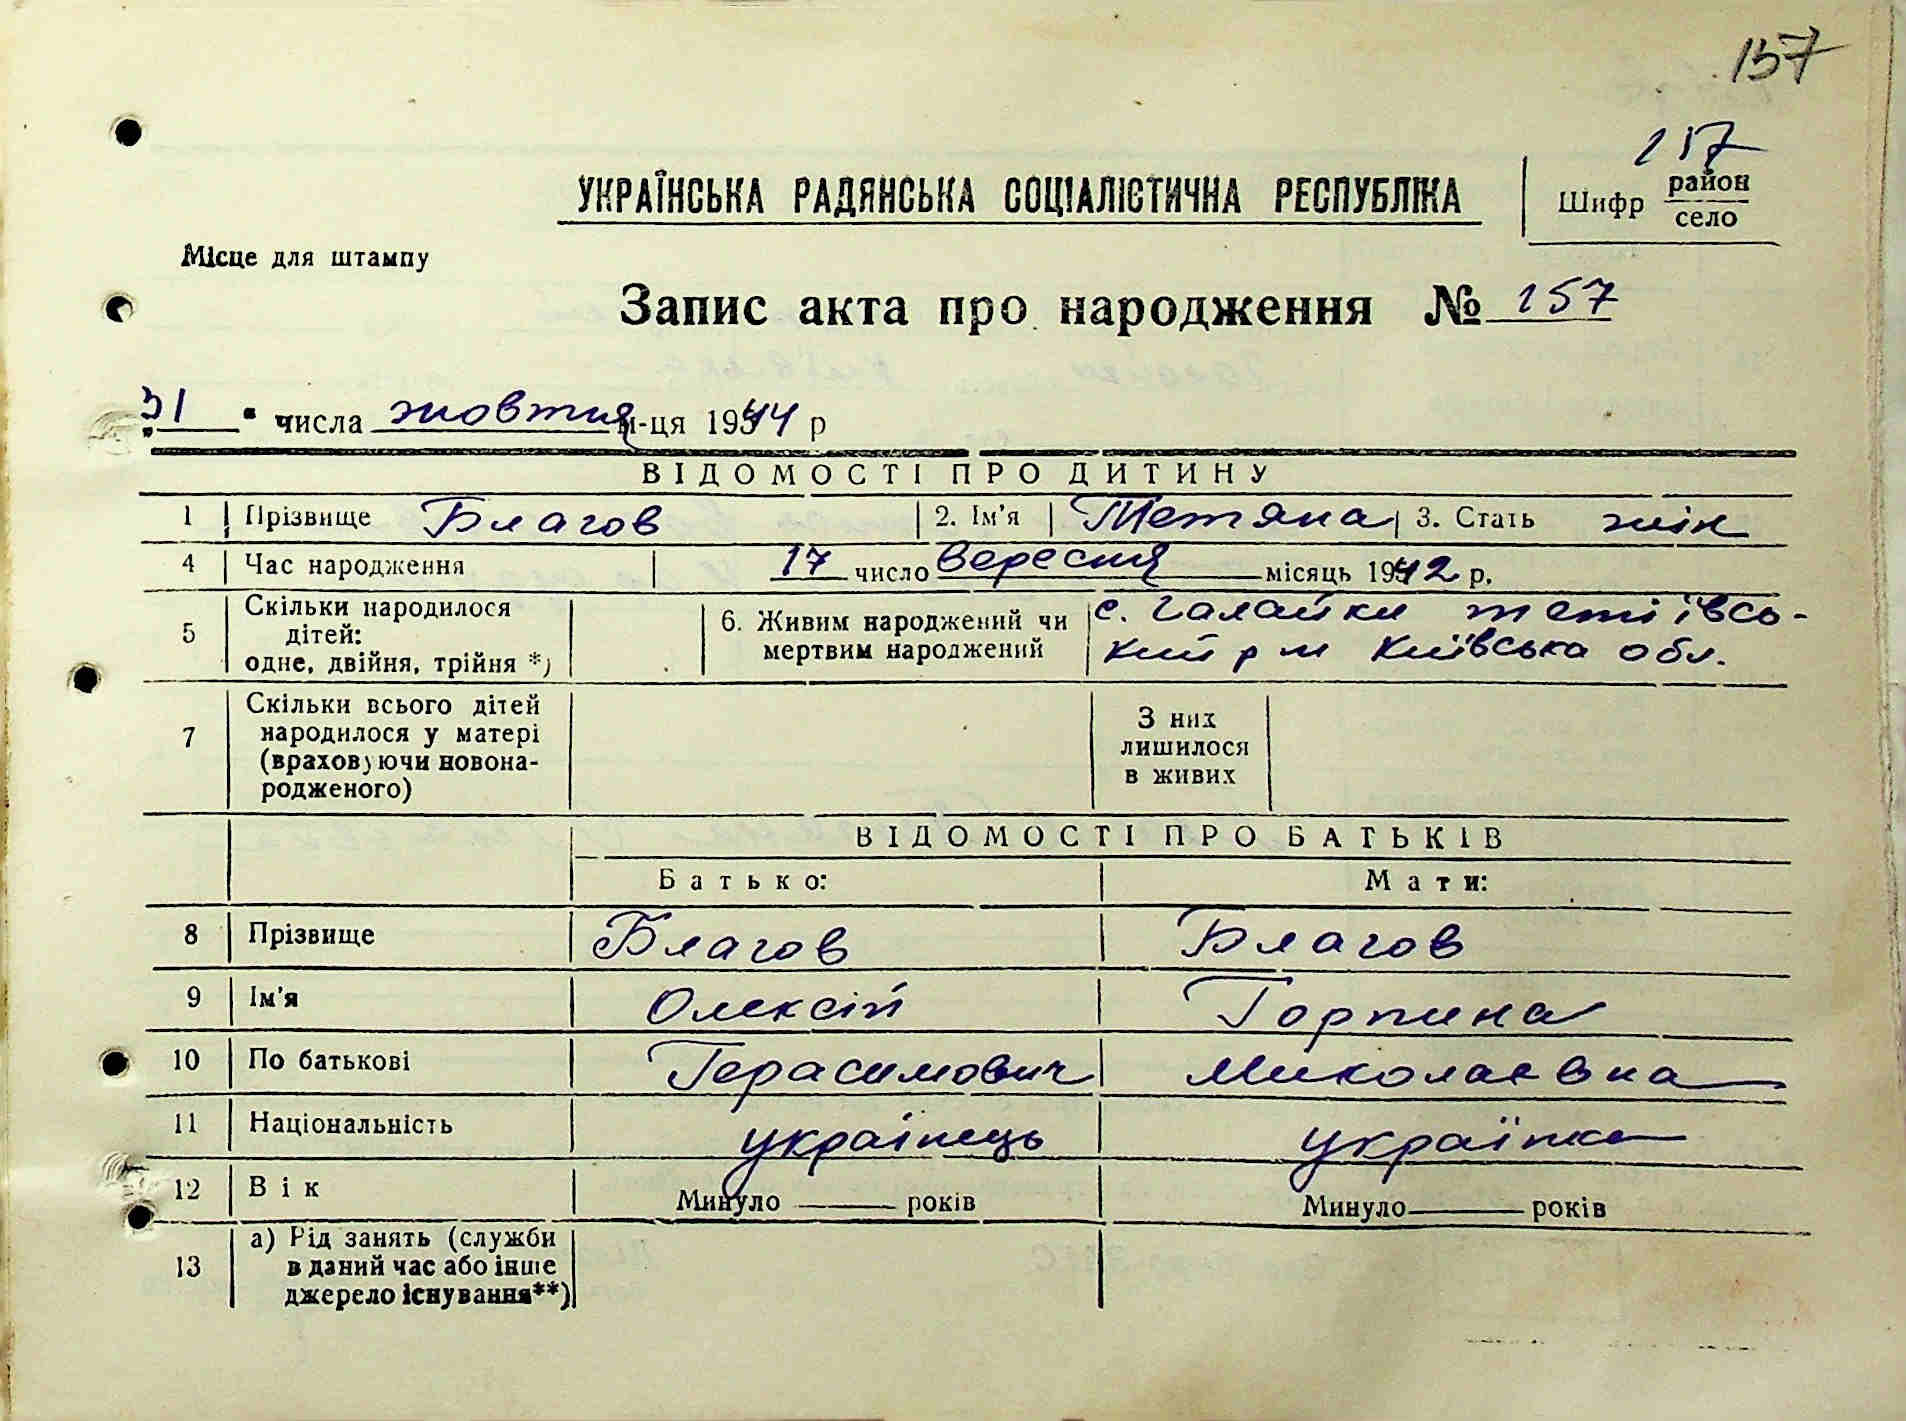 157
157
УКРАЇНСЬКА РАДЯНСЬКА СОЦІАЛІСТИЧНА РЕСПУБЛІКА
Шифр район
село
Місце для штампу
Запис акта про народження № 157
31 " числа жовтня м-ця 1944 р
ВІДОМОСТІ ПРО ДИТИНУ
1 Прізвище Благов 2. Ім'я Тетяна 3. Стать жін
4 Час народження 17 число вересня місяць 1942 р.
5 Скільки народилося дітей: одне, двійня, трійня *) 6. Живим народжений чи мертвим народжений с. Галайки тетіївсь-
кий р н Київська обл.
7 Скільки всього дітей народилося у матері (враховуючи новона-родженого) З них лишилося в живих
ВІДОМОСТІ ПРО БАТЬКІВ
Батько: Мати:
8 Прізвище Благов Благов
9 Ім'я Олексій Горпина
10 По батькові Герасимович Миколаєвна
11 Національність українець українка
12 Вік Минуло років Минуло років
13 а) Рід занять (служби
в даний час або інше
джерело існування**)